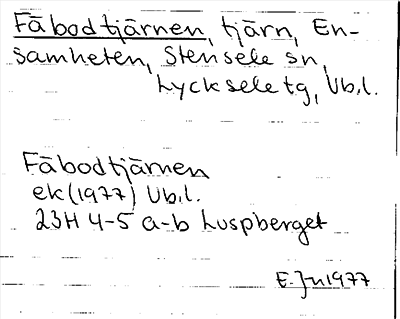 Fäbodtjärnen, tjärn, En-
samheten, Stensele sn,
Lycksele tg, Vb.l.
Fäbodtjärnen
ek (1977) Vb.l.
23H 4-5 a-b Luspberget
E. Jn 1977